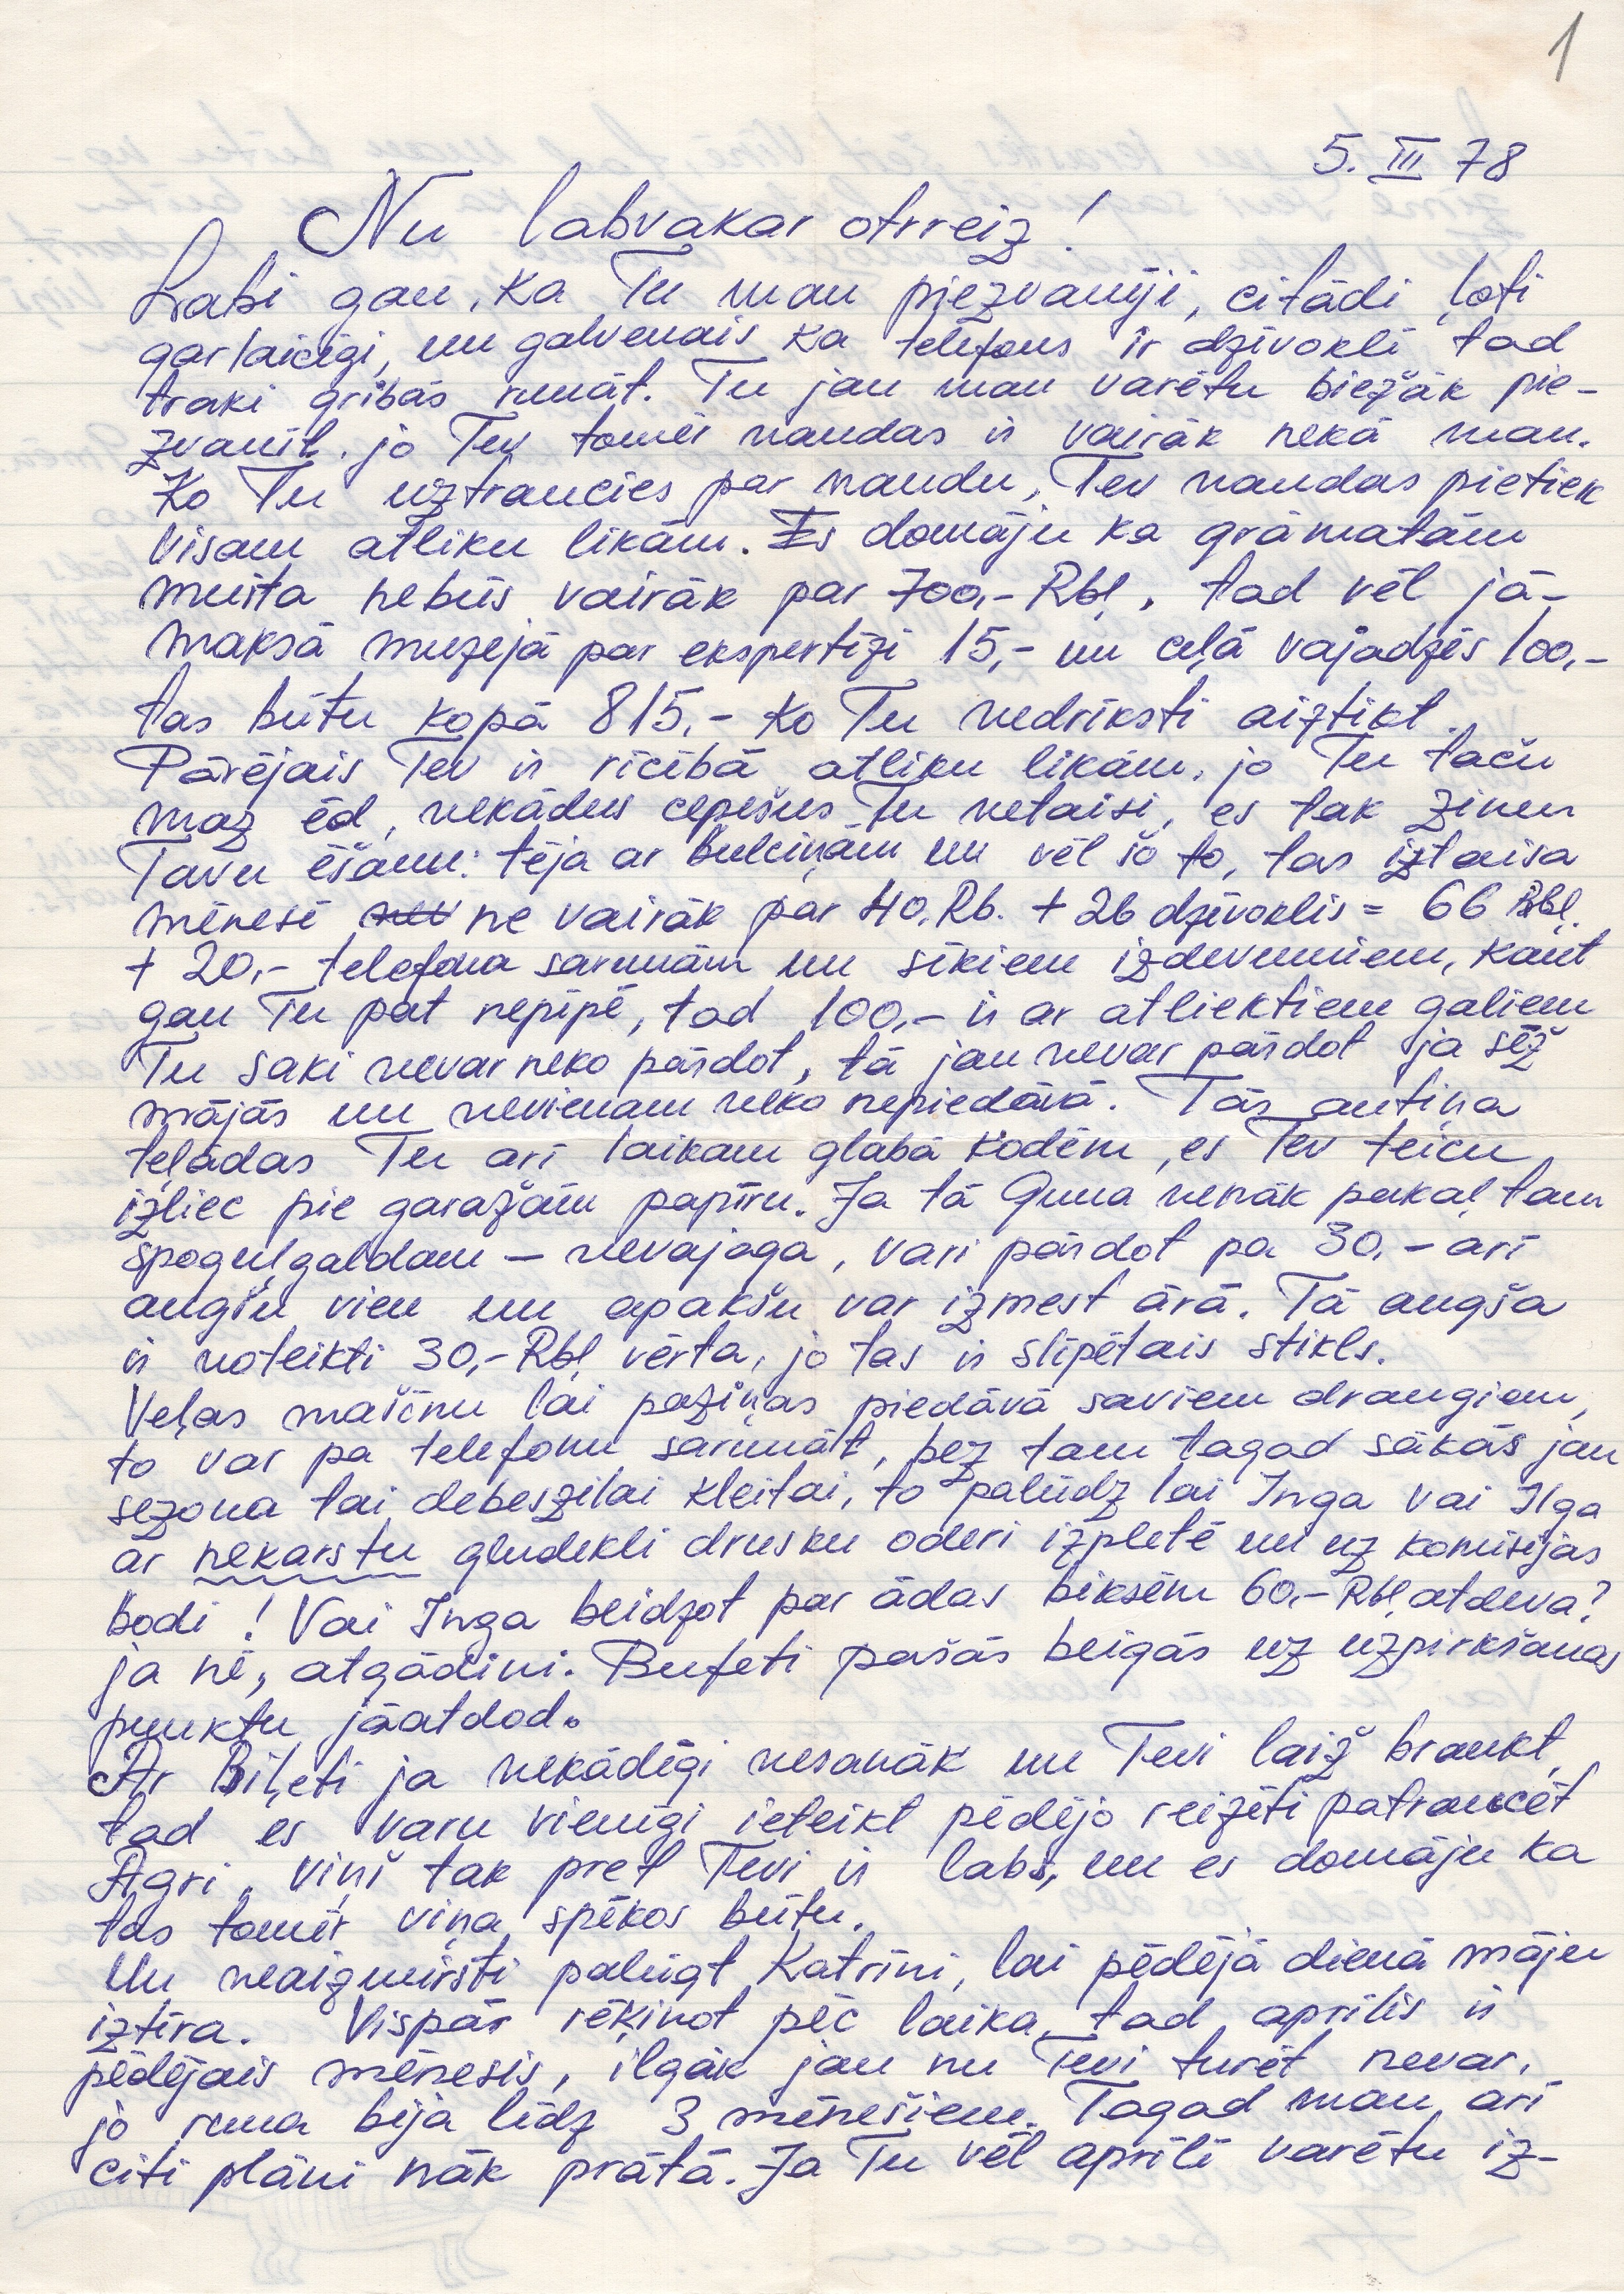 1
5. III 78
Nu labvakar otrreiz!
Labi gan, ka Tu man piezvanīji, citādi ļoti
garlaicīgi, un galvenais ka telefons ir dzīvoklī tad
traki gribās runāt. Tu jau man varētu biežāk pie-
zvanīt, jo Tev tomēr naudas ir vairāk nekā man.
Ko Tu uztraucies par naudu, Tev naudas pietiek
visam atliku likām. Es domāju ka grāmatām
muita nebūs vairāk par 700,- Rbļ, tad vēl jā-
maksā muzejā par ekspertīzi 15,- un ceļā vajadzēs 100,-
tas būtu kopā 815,- ko Tu nedrīksti aiztikt.
Pārējais Tev ir rīcībā atliku likām, jo Tu taču
maz ēd, nekādus cepešus Tu netaisi, es tak zinu
Tavu ēšanu: tēja ar bulciņām un vēl šo to, tas iztaisa
mēnesī ne vairāk par 40. Rb. + 26 dzīvoklis = 66 Rbļ.
+ 20,- telefona sarunām un sīkiem izdevumiem, kaut
gan Tu pat nepīpē, tad 100,- ir ar atliektiem galiem
Tu saki nevar neko pārdot, tā jau nevar pārdot ja sēž
mājās un nevienam neko nepiedāvā. Tās autiņa
teļādas Tu arī laikam glabā kodēm, es Tev teicu
izliec pie garažām papīru. Ja tā Guna nenāk pakaļ tam
spoguļgaldam – nevajaga, vari pārdot pa 30,- arī
augšu vien un apakšu var izmest ārā. Tā augša
ir noteikti 30,- Rbļ vērta, jo tas ir slīpētais stikls.
Veļas mašīnu lai paziņas piedāvā saviem draugiem,
to var pa telefonu sarunāt, bez tam tagad sākās jau
sezona tai debeszilai kleitai, to palūdz lai Inga vai Ilga
ar nekarstu gludekli drusku oderi izpletē un uz komisijas
bodi! Vai Inga beidzot par ādas biksēm 60,- Rbļ atdeva?
ja nē, atgādini. Bufeti pašās beigās uz uzpirkšanas
punktu jāatdod.
Ar Biļeti ja nekādīgi nesanāk un Tevi laiž braukt,
tad es varu vienīgi ieteikt pēdējo reizīti patraucēt
Agri, viņš tak pret Tevi ir labs, un es domāju ka
tas tomēr viņa spēkos būtu.
Un neaizmirsti palūgt Katrīni, lai pēdējā dienā māju
iztīra. Vispār rēķinot pēc laika, tad aprīlis ir
pēdējais mēnesis, ilgāk jau nu Tevi turēt nevar,
jo runa bija līdz 3 mēnešiem. Tagad man arī
citi plāni nāk prātā. Ja Tu vēl aprīlī varētu iz-